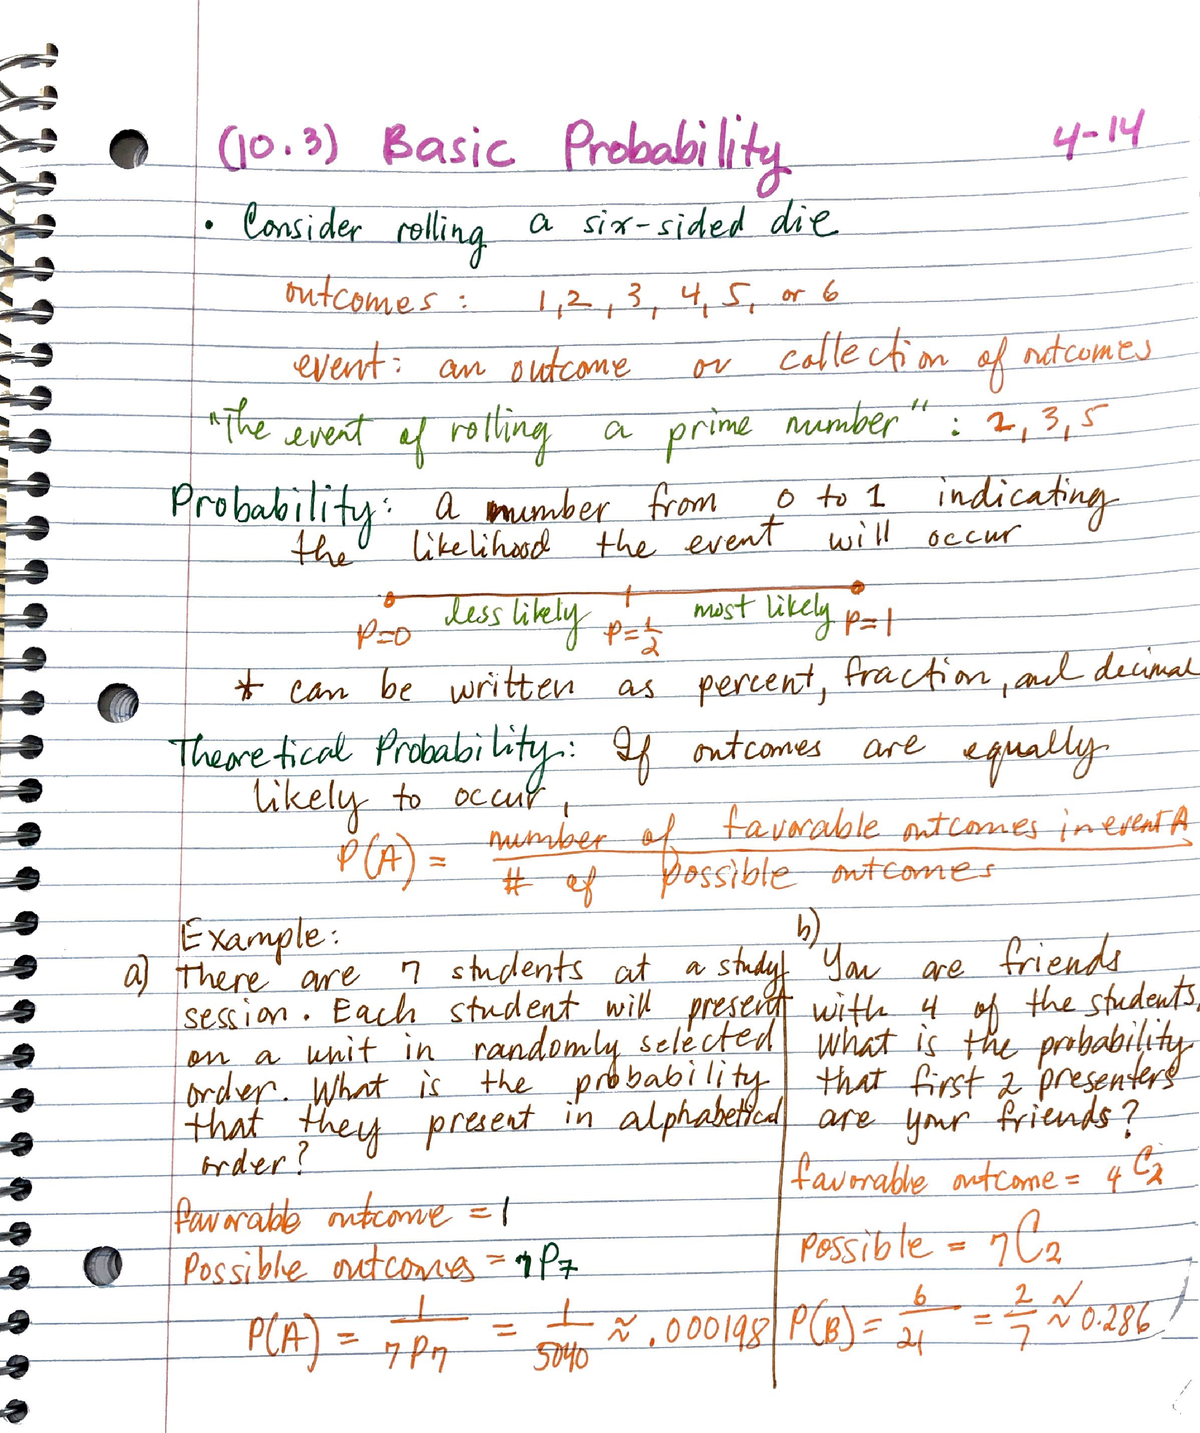 (10.3) Basic Probability 4-14
• Consider rolling a six-sided die
outcomes: 1,2,3, 4, 5, or 6
event: an outcome or collection of outcomes
"The event of rolling a prime number": 2,3,5
Probability: a number from 0 to 1 indicating
the likelihood the event will occur
less likely most likely
P=0 P=1/2 P=1
* can be written as percent, fraction, and decimal
Theoretical Probability: If outcomes are equally
likely to occur,
P(A) = number of favorable outcomes in event A
# of possible outcomes
Example:
a) There are 7 students at a study
session. Each student will present
on a unit in randomly selected
order. What is the probability
that they present in alphabetical
order?
favorable outcome = 1
Possible outcomes = 7P7
P(A) = 1/7P7 = 1/5040 ≈ .000198
b)
You are friends
with 4 of the students.
What is the probability
that first 2 presenters
are your friends?
favorable outcome = 4C2
possible = 7C2
P(B) = 6/21 = 2/7 ≈ 0.286